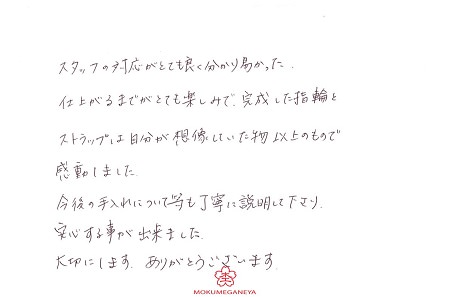 スタッフの対応がとても良く分かり易かった.
仕上がるまでがとても楽しみで、完成した指輪と
ストラップは自分が想像していた物以上のもので
感動しました.
今後の手入れについて等も丁寧に説明して下さり、
安心する事が出来ました.
大切にします. ありがとうございます.
MOKUMEGANEYA